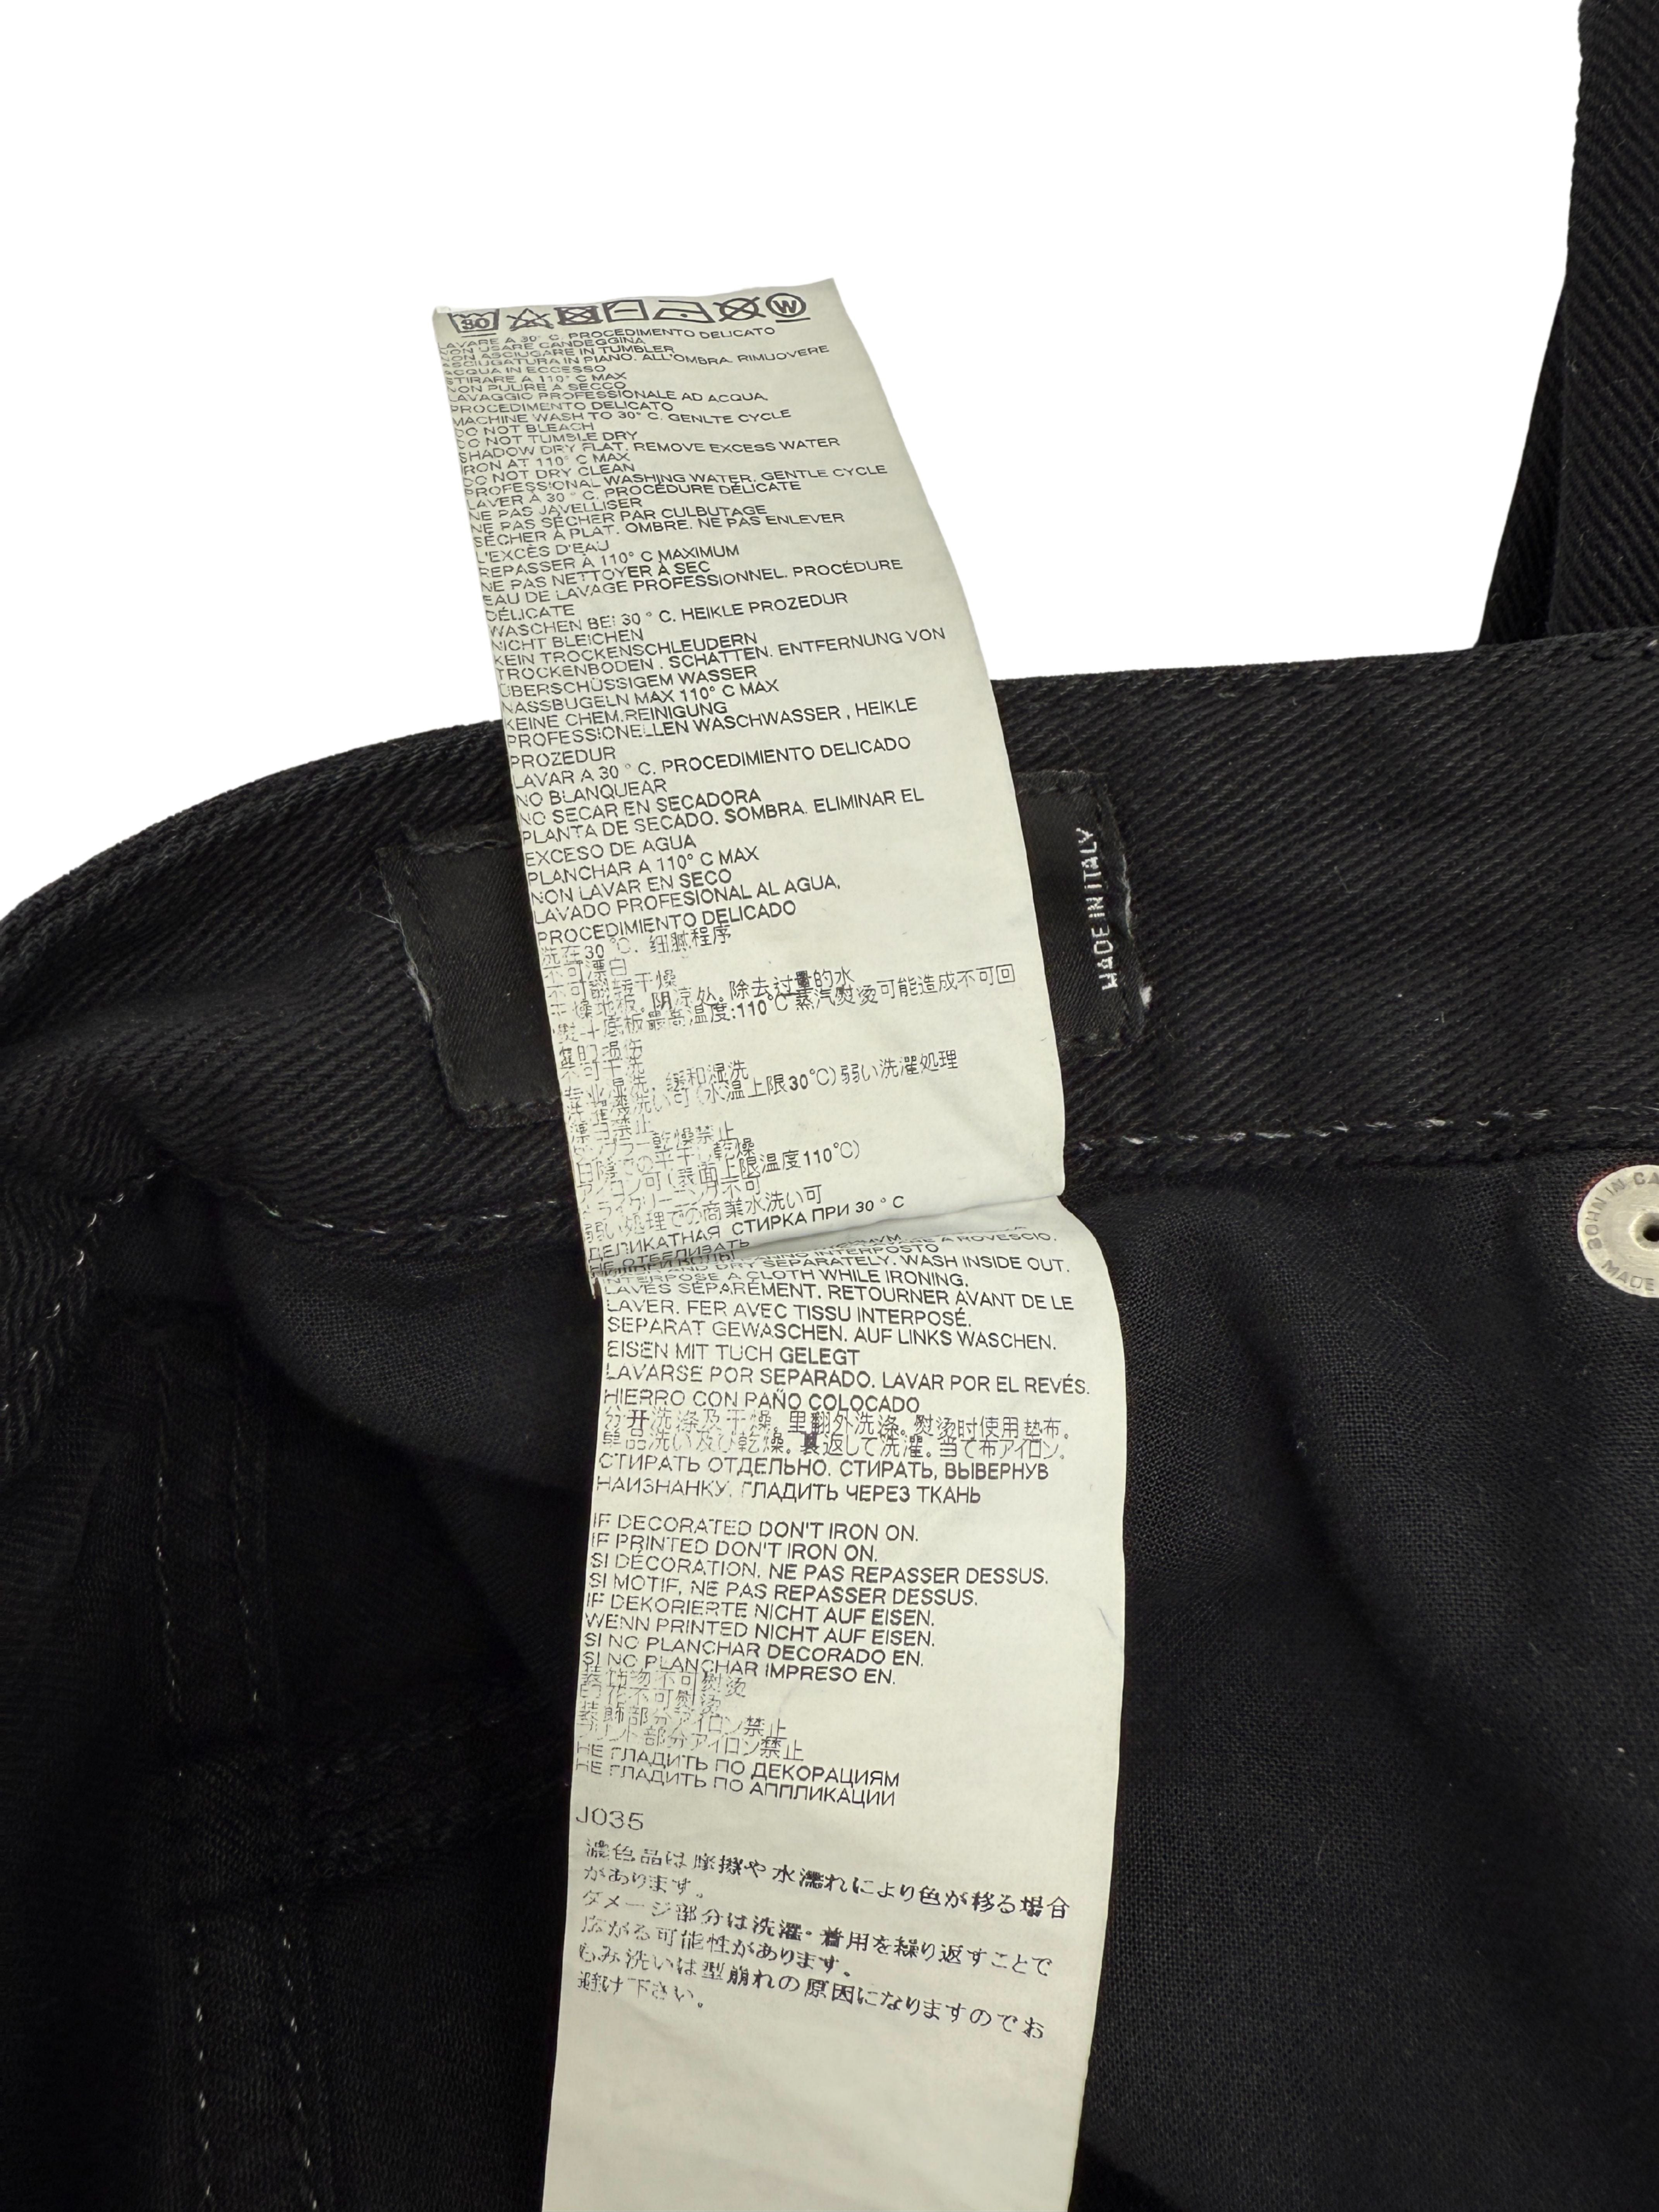 30 W
LAVARE A 30° C. PROCEDIMENTO DELICATO
NON USARE CANDEGGINA
NON ASCIUGARE IN TUMBLER
ASCIUGATURA IN PIANO. ALL'OMBRA. RIMUOVERE
ACQUA IN ECCESSO
STIRARE A 110° C MAX
NON PULIRE A SECCO
LAVAGGIO PROFESSIONALE AD ACQUA,
PROCEDIMENTO DELICATO
MACHINE WASH TO 30° C. GENLTE CYCLE
DO NOT BLEACH
DO NOT TUMBLE DRY
SHADOW DRY FLAT. REMOVE EXCESS WATER
IRON AT 110° C MAX
DO NOT DRY CLEAN
PROFESSIONAL WASHING WATER. GENTLE CYCLE
LAVER À 30° C. PROCÉDURE DÉLICATE
NE PAS JAVELLISER
NE PAS SÉCHER PAR CULBUTAGE
SÉCHER À PLAT. OMBRE. NE PAS ENLEVER
L'EXCÈS D'EAU
REPASSER À 110° C MAXIMUM
NE PAS NETTOYER À SEC
EAU DE LAVAGE PROFESSIONNEL. PROCÉDURE
DÉLICATE
WASCHEN BEI 30° C. HEIKLE PROZEDUR
NICHT BLEICHEN
KEIN TROCKENSCHLEUDERN
TROCKENBODEN . SCHATTEN. ENTFERNUNG VON
ÜBERSCHÜSSIGEM WASSER
NASSBUGELN MAX 110° C MAX
KEINE CHEM.REINIGUNG
PROFESSIONELLEN WASCHWASSER , HEIKLE
PROZEDUR
LAVAR A 30° C. PROCEDIMIENTO DELICADO
NO BLANQUEAR
NO SECAR EN SECADORA
PLANTA DE SECADO. SOMBRA. ELIMINAR EL
EXCESO DE AGUA
PLANCHAR A 110° C MAX
NON LAVAR EN SECO
LAVADO PROFESIONAL AL AGUA,
PROCEDIMIENTO DELICADO
洗在30°C. 细腻程序
不可漂白
不可翻转干燥
干燥地板。阴凉处。除去过量的水
熨斗底板最高温度:110°C 蒸汽熨烫可能造成不可回
复的损伤
不可干洗
专业湿洗. 缓和湿洗
洗い可(水温上限30°C)弱い洗濯処理
禁止
乾燥禁止
日陰での平干し乾燥
アイロン可(表面上限温度110°C)
ドライクリーニング不可
弱い処理での商業水洗い可
ДЕЛИКАТНАЯ СТИРКА ПРИ 30° C
НЕ ОТБЕЛИВАТЬ
A ROVESCIO.
INTERPOSTO
AND DRY SEPARATELY. WASH INSIDE OUT.
INTERPOSE A CLOTH WHILE IRONING.
LAVES SÉPARÉMENT. RETOURNER AVANT DE LE
LAVER. FER AVEC TISSU INTERPOSÉ.
SEPARAT GEWASCHEN. AUF LINKS WASCHEN.
EISEN MIT TUCH GELEGT
LAVARSE POR SEPARADO. LAVAR POR EL REVÉS.
HIERRO CON PAÑO COLOCADO
分开洗涤及干燥。里翻外洗涤。熨烫时使用垫布。
単品洗い及び乾燥。裏返して洗濯。当て布アイロン。
СТИРАТЬ ОТДЕЛЬНО. СТИРАТЬ, ВЫВЕРНУВ
НАИЗНАНКУ. ГЛАДИТЬ ЧЕРЕЗ ТКАНЬ
IF DECORATED DON'T IRON ON.
IF PRINTED DON'T IRON ON.
SI DÉCORATION. NE PAS REPASSER DESSUS.
SI MOTIF, NE PAS REPASSER DESSUS.
IF DEKORIERTE NICHT AUF EISEN.
WENN PRINTED NICHT AUF EISEN.
SI NO PLANCHAR DECORADO EN.
SI NO PLANCHAR IMPRESO EN.
装饰物不可熨烫
印花不可熨烫
装飾部分アイロン禁止
プリント部分アイロン禁止
НЕ ГЛАДИТЬ ПО ДЕКОРАЦИЯМ
НЕ ГЛАДИТЬ ПО АППЛИКАЦИИ
J035
濃色品は摩擦や水濡れにより色が移る場合
があります。
ダメージ部分は洗濯・着用を繰り返すことで
広がる可能性があります。
もみ洗いは型崩れの原因になりますのでお
避け下さい。
MADE IN ITALY
BORN IN CA
MADE